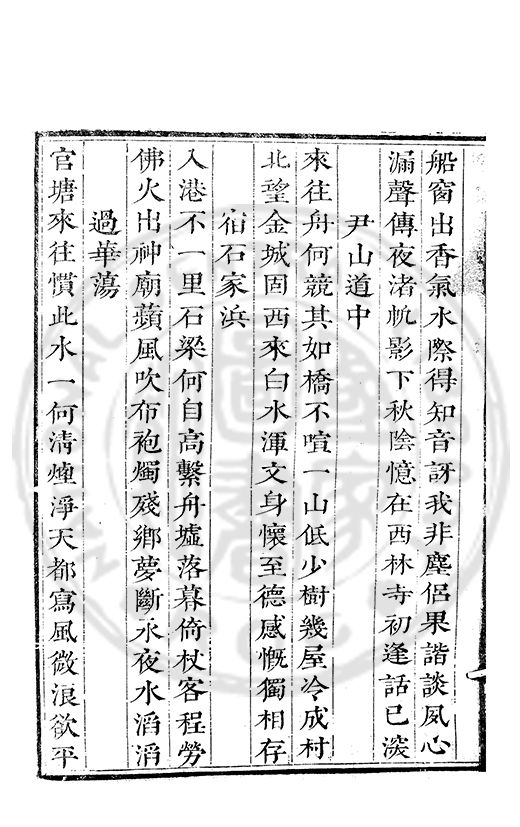 船窗出香氣水際得知音訝我非塵侶果諧談夙心
漏聲傳夜渚帆影下秋陰憶在西林寺初逢話已深
尹山道中
來往舟何競其如橋不喧一山低少樹幾屋冷成村
北望金城固西來白水渾文身懷至德感慨獨相存
宿石家浜
入港不一里石梁何自高繫舟墟落暮倚杖客程勞
佛火出神廟蘋風吹布袍燭殘鄉夢斷永夜水滔滔
過華蕩
官塘來往慣此水一何清煙淨天都寫風微浪欲平